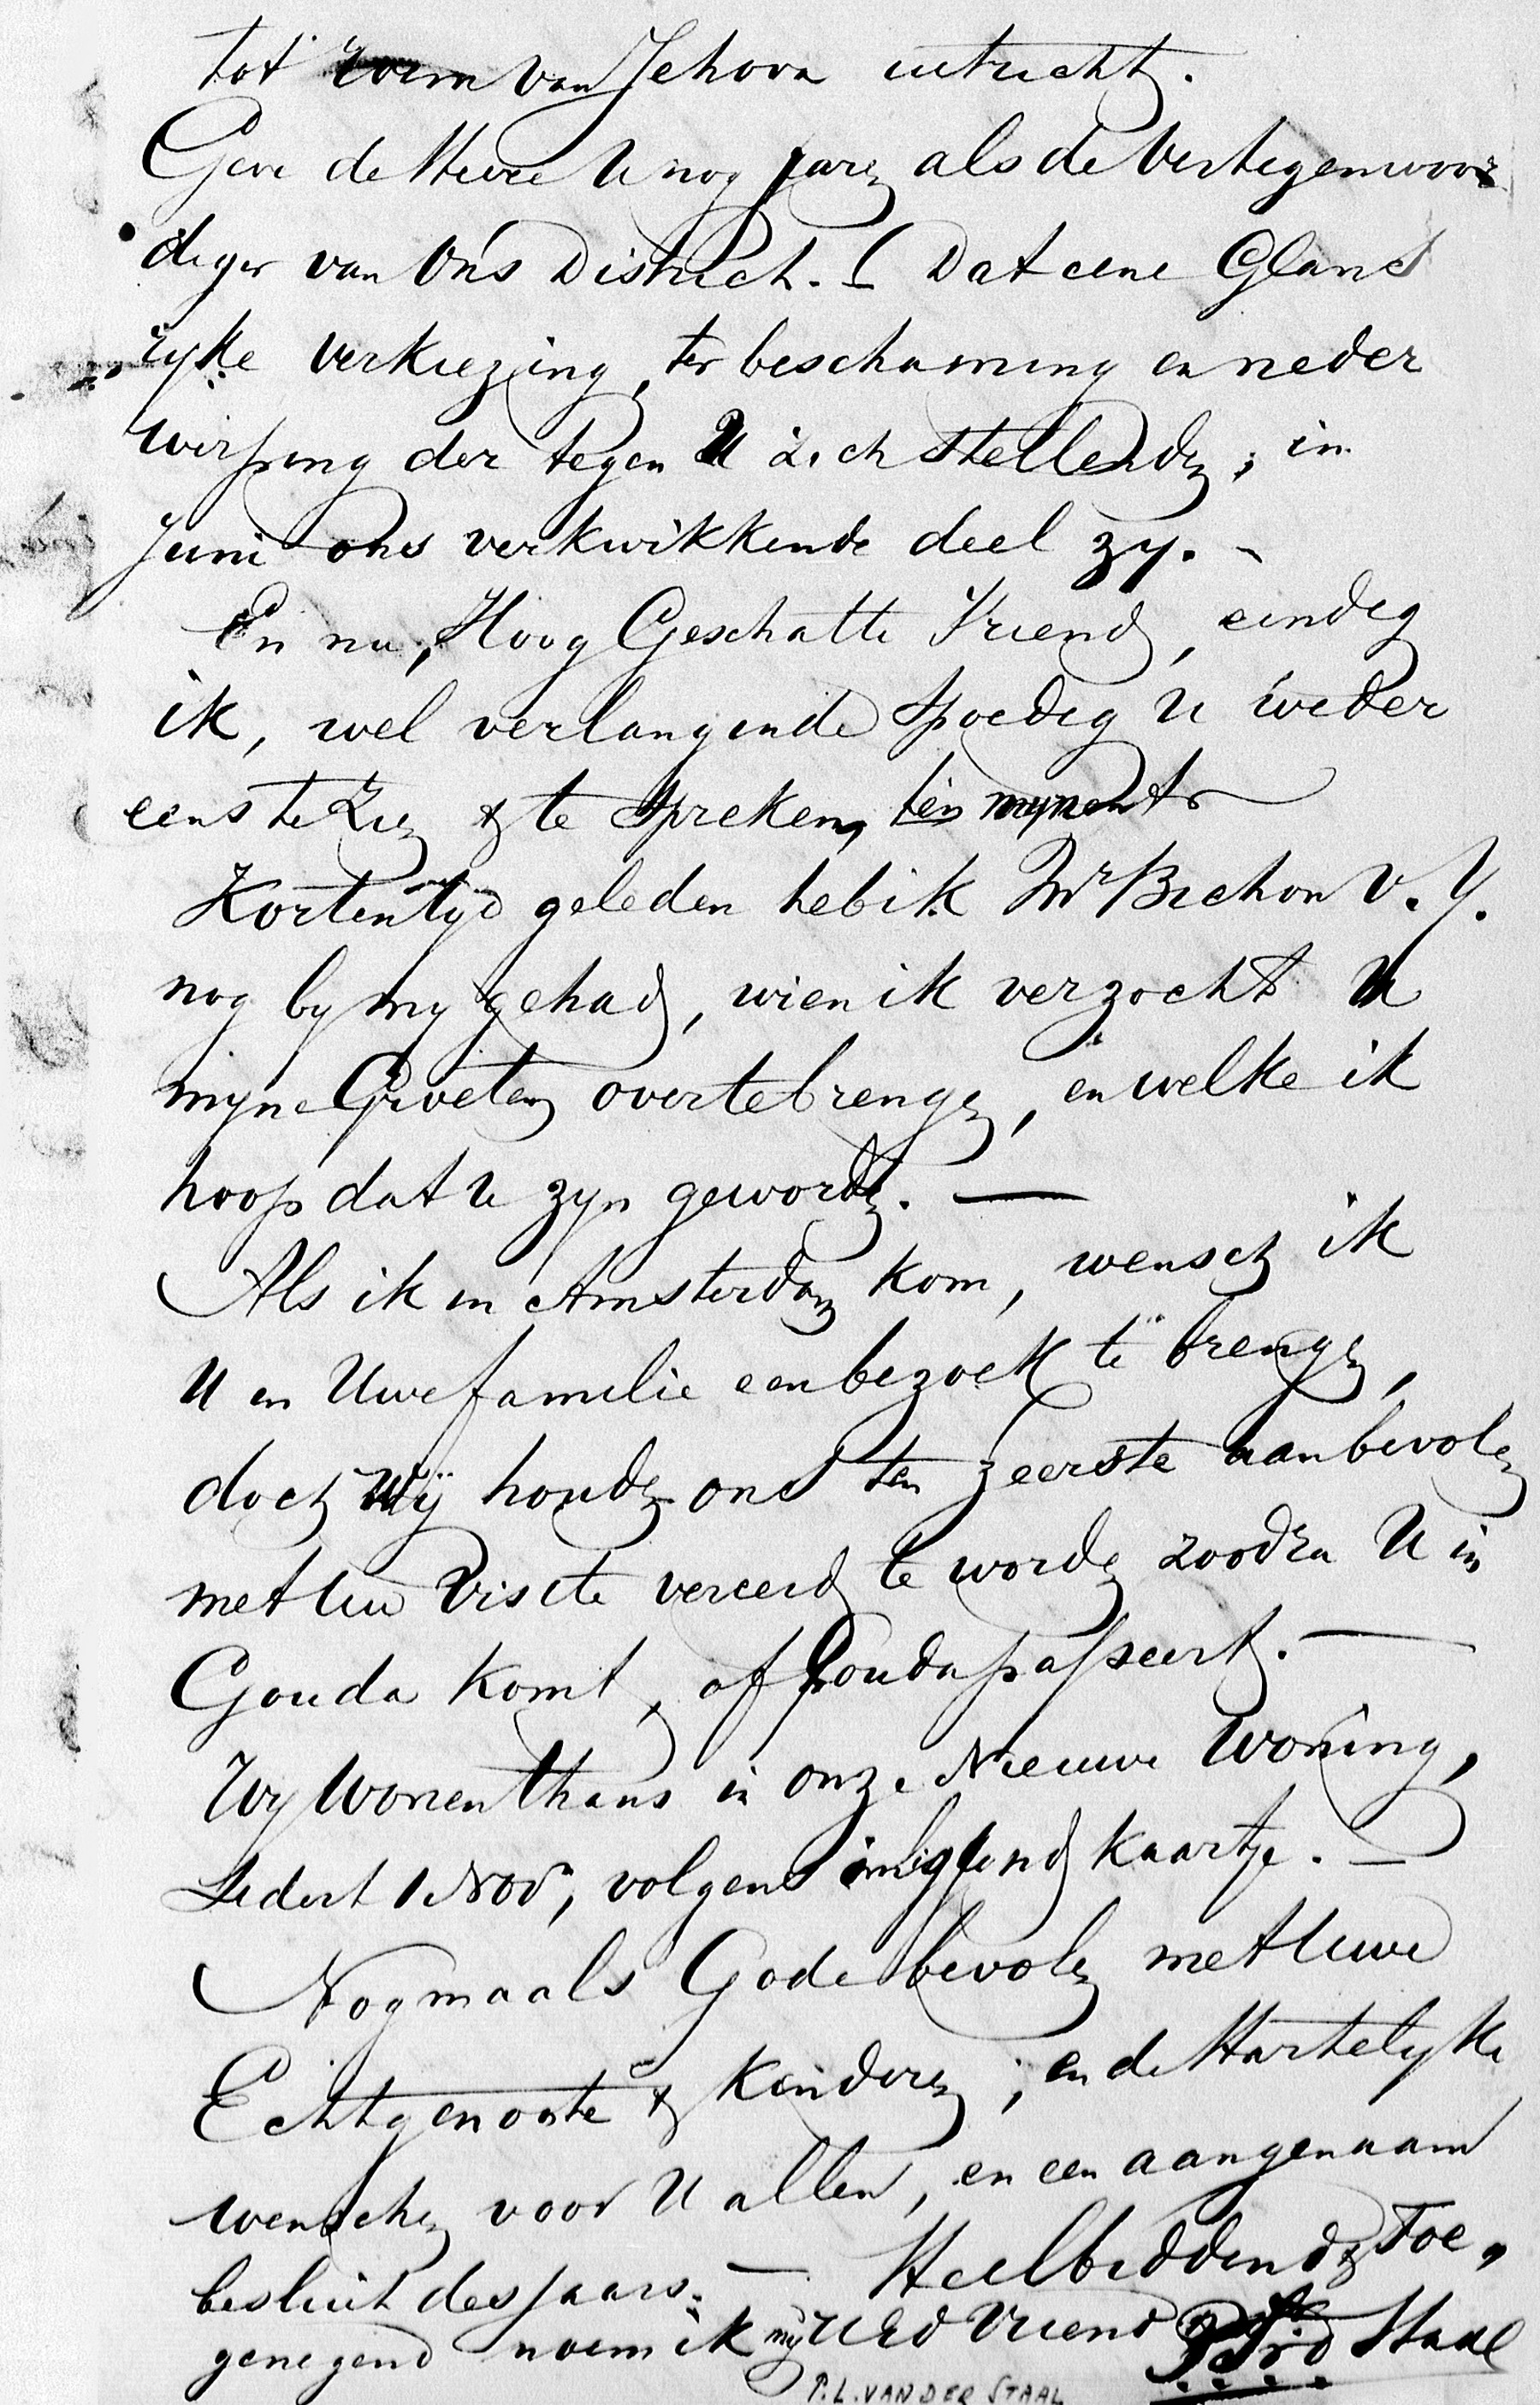 tot roem van Jehova uitricht.
Geve de Heere U nog jaren als de Vertegenwoor
diger van Ons District. Dat eene Glans
ryke verkiezing, ter beschaming en neder
werping der tegen U zich stellenden, in
Juni ons verkwikkende deel zy. -
En nu, Hoog Geschatte Vriend, eindig
ik, wel verlangende Spoedig U weder
eens te Zien & te Spreken, ten mynent
Korten tyd geleden heb ik Mr Bichon v. Y.
nog by my gehad, wien ik verzocht U
mijne Groeten over te brengen, en welke ik
hoop dat U zyn geworden. —
Als ik in Amsterdam kom, wensch ik
U en Uwe familie een bezoek te brengen,
doch Wij houden ons ten zeerste aanbevolen
met Uw Visite vereerd te worden zoodra U in
Gouda komt, of Gouda passeert. —
Wy Wonen thans in onze Nieuwe Woning,
Sedert 1 Novr, volgens inliggend kaartje. —
Nogmaals Gode bevolen met Uwe
Echtgenoote & Kinderen; en de Hartelyke
wenschen voor U allen, en een aangenaam
besluit des Jaars. — Heelbiddend & Toe,
genegend noem ik my UEd Vriend Staal
P.L. VAN DER STAAL